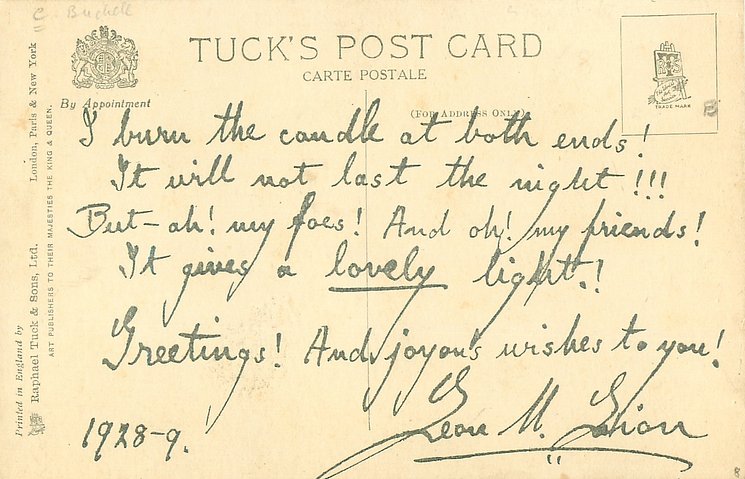 TUCK'S POST CARD
CARTE POSTALE
By Appointment
(FOR ADDRESS ONLY)
TRADE MARK
I burn the candle at both ends!
It will not last the night!!!
But – ah! my foes! And oh! my friends!
It gives a lovely light!!
Greetings! And joyous wishes to you!
1928-9.
Leon M. Lion
Printed in England by
Raphael Tuck & Sons, Ltd. London, Paris & New York
ART PUBLISHERS TO THEIR MAJESTIES THE KING & QUEEN.